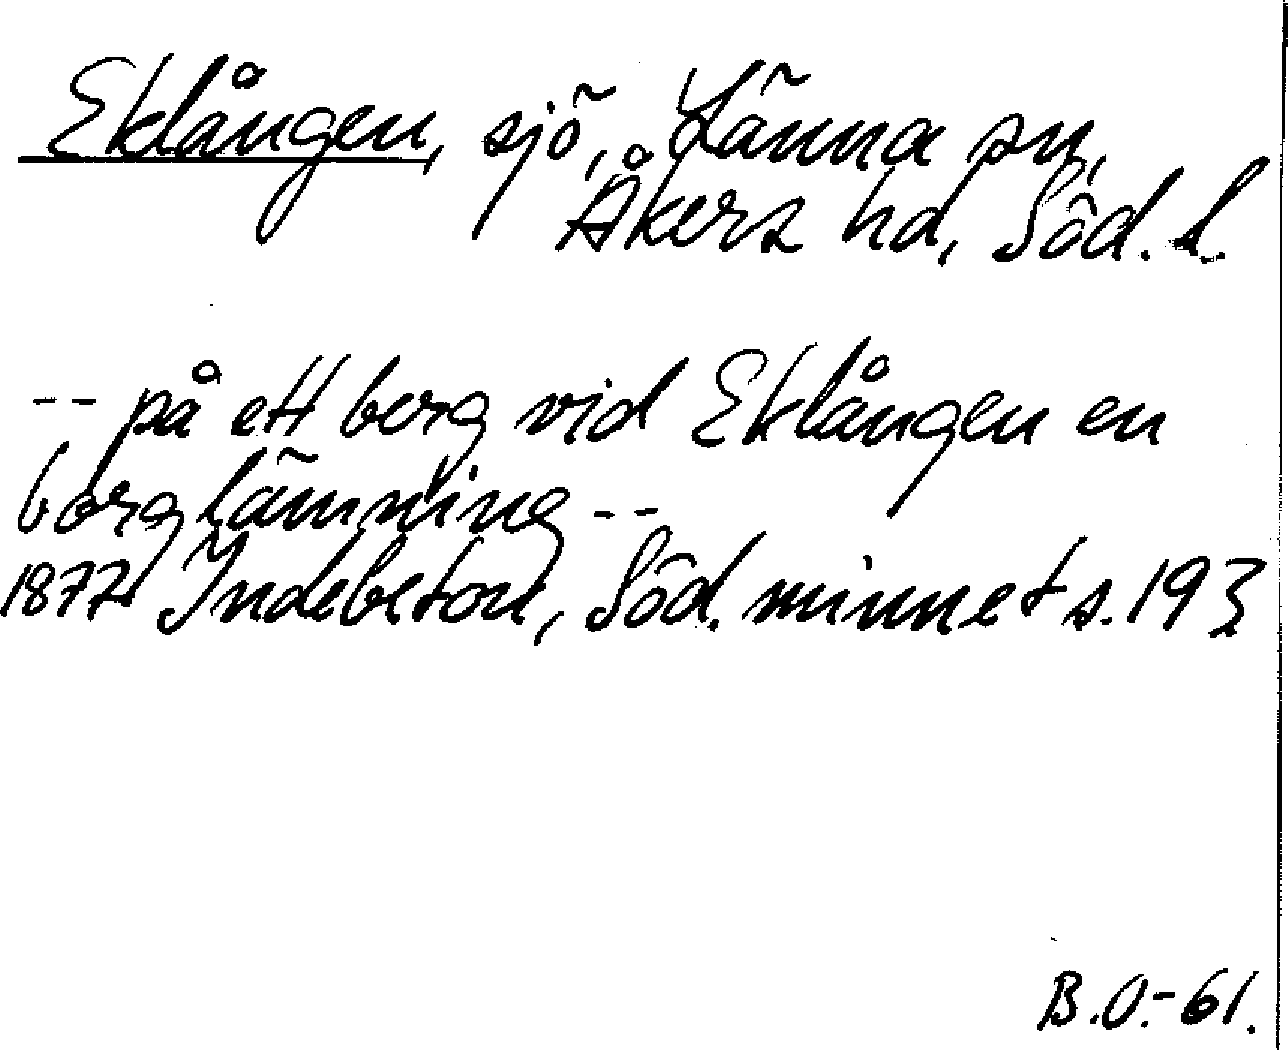 Eklången, sjö, Länna sn,
Åkers hd, Söd. l.
-- på ett berg vid Eklången en
borglämning --
1877 Indebetou, Söd. minnet s. 193
B.O.-61.